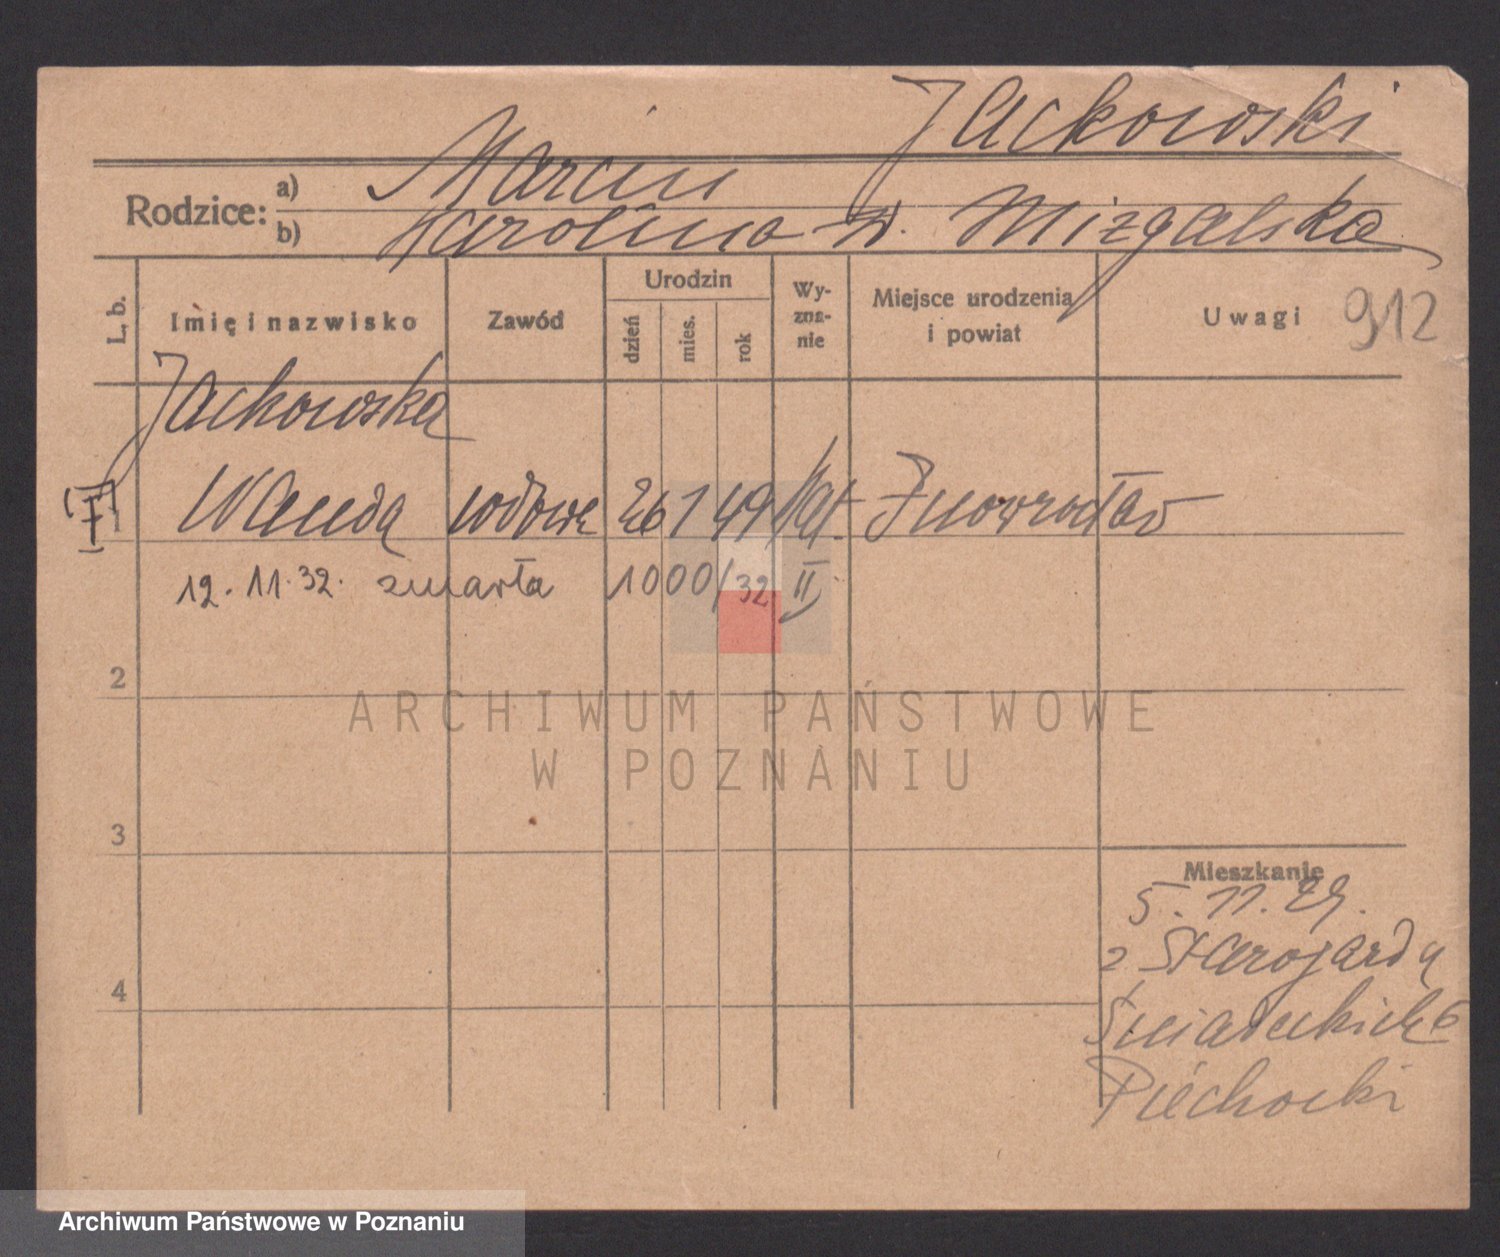 Jackowski
Rodzice: a) Marcin
b) Karolina z d. Mizgalska
L. b. Imię i nazwisko Zawód Urodzin dzień mies. rok Wyznanie Miejsce urodzenia i powiat Uwagi 912
Jackowska
1 Wanda wdowa 26 1 49 kat. Inowrocław
12. 11. 32. zmarła 1000/32 II
2
ARCHIWUM PAŃSTWOWE
W POZNANIU
3
Mieszkanie
5. 11. 29.
z Starogardu
4
Śniadeckich 6
Piechocki
Archiwum Państwowe w Poznaniu